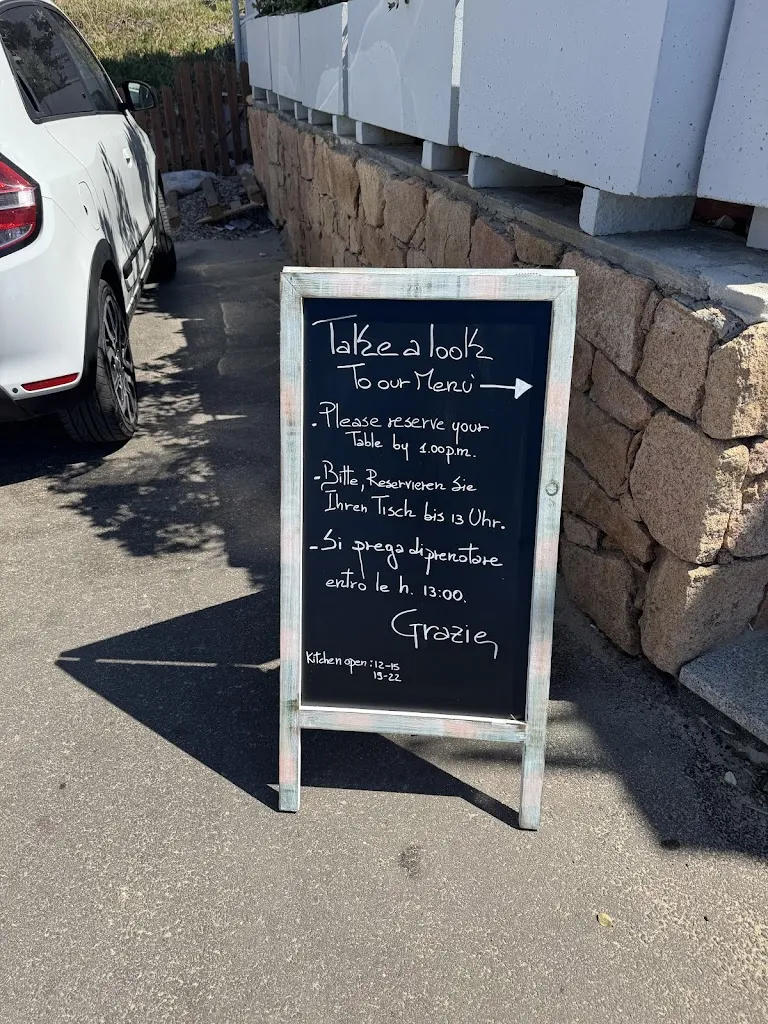 Take a look
To our Menù →
. Please reserve your
Table by 1.00p.m.
- Bitte, Reservieren Sie
Ihren Tisch bis 13 Uhr.
- Si prega di prenotare
entro le h. 13:00.
Grazie
Kitchen open: 12-15
19-22